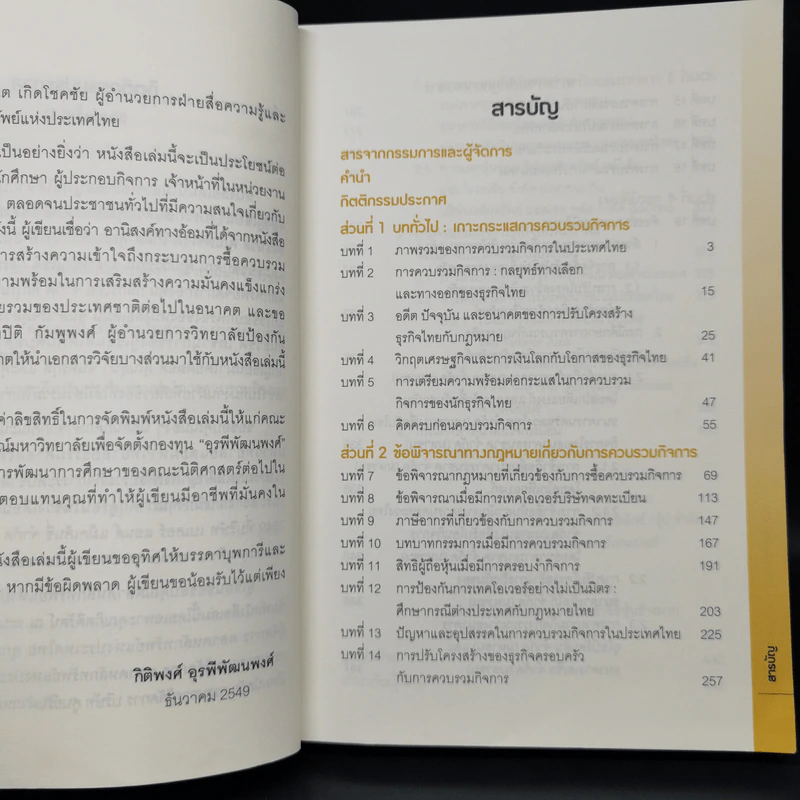 ต เกิดโชคชัย ผู้อำนวยการฝ่ายสื่อความรู้และ
พย์แห่งประเทศไทย
เป็นอย่างยิ่งว่า หนังสือเล่มนี้จะเป็นประโยชน์ต่อ
ักศึกษา ผู้ประกอบกิจการ เจ้าหน้าที่ในหน่วยงาน
ตลอดจนประชาชนทั่วไปที่มีความสนใจเกี่ยวกับ
งนี้ ผู้เขียนเชื่อว่า อานิสงค์ทางอ้อมที่ได้จากหนังสือ
การสร้างความเข้าใจถึงกระบวนการซื้อควบรวม
ามพร้อมในการเสริมสร้างความมั่นคงแข็งแกร่ง
ยรวมของประเทศชาติต่อไปในอนาคต และขอ
ปิติ กัมพูพงศ์ ผู้อำนวยการวิทยาลัยป้องกัน
าตให้นำเอกสารวิจัยบางส่วนมาใช้กับหนังสือเล่มนี้
ค่าลิขสิทธิ์ในการจัดพิมพ์หนังสือเล่มนี้ให้แก่คณะ
ณ์มหาวิทยาลัยเพื่อจัดตั้งกองทุน "อุรพีพัฒนพงศ์"
การพัฒนาการศึกษาของคณะนิติศาสตร์ต่อไปใน
ตอบแทนคุณที่ทำให้ผู้เขียนมีอาชีพที่มั่นคงใน
นังสือเล่มนี้ผู้เขียนขออุทิศให้บรรดาบุพการีและ
หากมีข้อผิดพลาด ผู้เขียนขอน้อมรับไว้แต่เพียง
กิติพงศ์ อุรพีพัฒนพงศ์
ธันวาคม 2549
สารบัญ
สารจากกรรมการและผู้จัดการ
คำนำ
กิตติกรรมประกาศ
ส่วนที่ 1 บททั่วไป : เกาะกระแสการควบรวมกิจการ
บทที่ 1 ภาพรวมของการควบรวมกิจการในประเทศไทย 3
บทที่ 2 การควบรวมกิจการ : กลยุทธ์ทางเลือก
และทางออกของธุรกิจไทย 15
บทที่ 3 อดีต ปัจจุบัน และอนาคตของการปรับโครงสร้าง
ธุรกิจไทยกับกฎหมาย 25
บทที่ 4 วิกฤตเศรษฐกิจและการเงินโลกกับโอกาสของธุรกิจไทย 41
บทที่ 5 การเตรียมความพร้อมต่อกระแสในการควบรวม
กิจการของนักธุรกิจไทย 47
บทที่ 6 คิดครบก่อนควบรวมกิจการ 55
ส่วนที่ 2 ข้อพิจารณาทางกฎหมายเกี่ยวกับการควบรวมกิจการ
บทที่ 7 ข้อพิจารณากฎหมายที่เกี่ยวข้องกับการซื้อควบรวมกิจการ 69
บทที่ 8 ข้อพิจารณาเมื่อมีการเทคโอเวอร์บริษัทจดทะเบียน 113
บทที่ 9 ภาษีอากรที่เกี่ยวข้องกับการควบรวมกิจการ 147
บทที่ 10 บทบาทกรรมการเมื่อมีการควบรวมกิจการ 167
บทที่ 11 สิทธิผู้ถือหุ้นเมื่อมีการครอบงำกิจการ 191
บทที่ 12 การป้องกันการเทคโอเวอร์อย่างไม่เป็นมิตร :
ศึกษากรณีต่างประเทศกับกฎหมายไทย 203
บทที่ 13 ปัญหาและอุปสรรคในการควบรวมกิจการในประเทศไทย 225
บทที่ 14 การปรับโครงสร้างของธุรกิจครอบครัว
กับการควบรวมกิจการ 257
สารบัญ